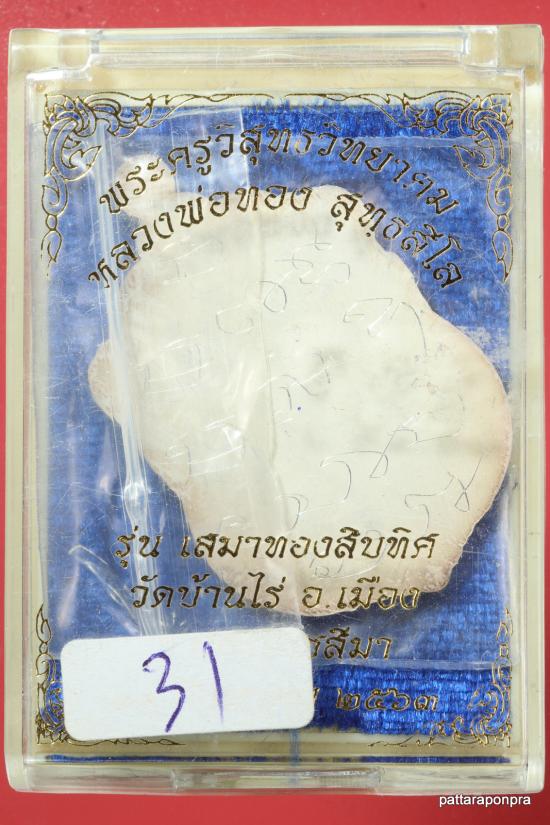 พระครูวิสุทธวิทยาคม
หลวงพ่อทอง สุทฺธสีโล
รุ่น เสมาทองสิบทิศ
วัดบ้านไร่ อ.เมือง
สีมา
31
๒๕๖๓
pattaraponpra